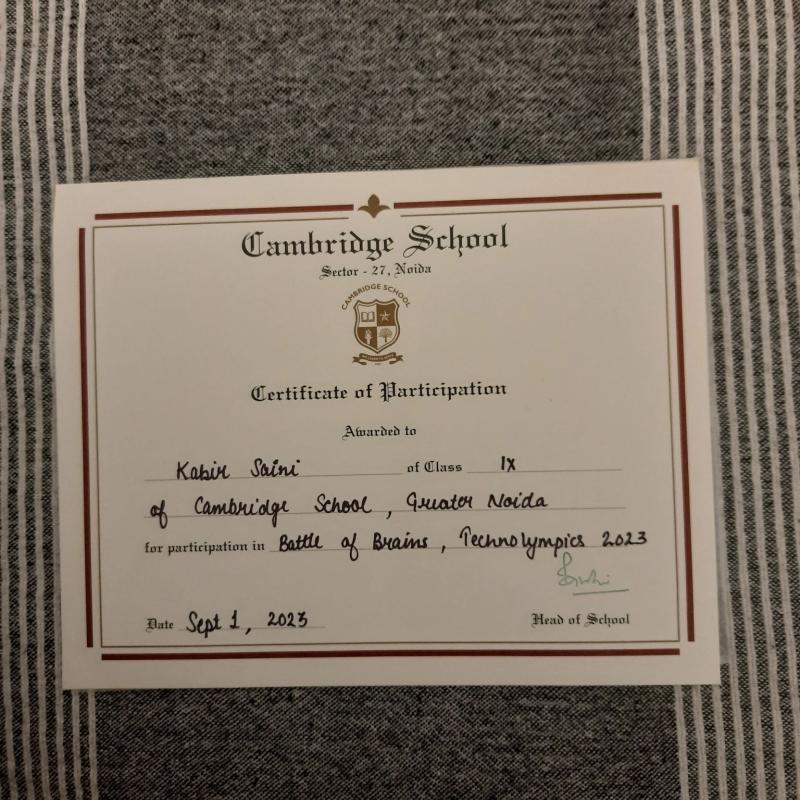 Cambridge School
Sector - 27, Noida
CAMBRIDGE SCHOOL
Certificate of Participation
Awarded to
Kabir Saini of Class IX
of Cambridge School, Greater Noida
for participation in Battle of Brains, Technolympics 2023
Date Sept 1, 2023
Head of School